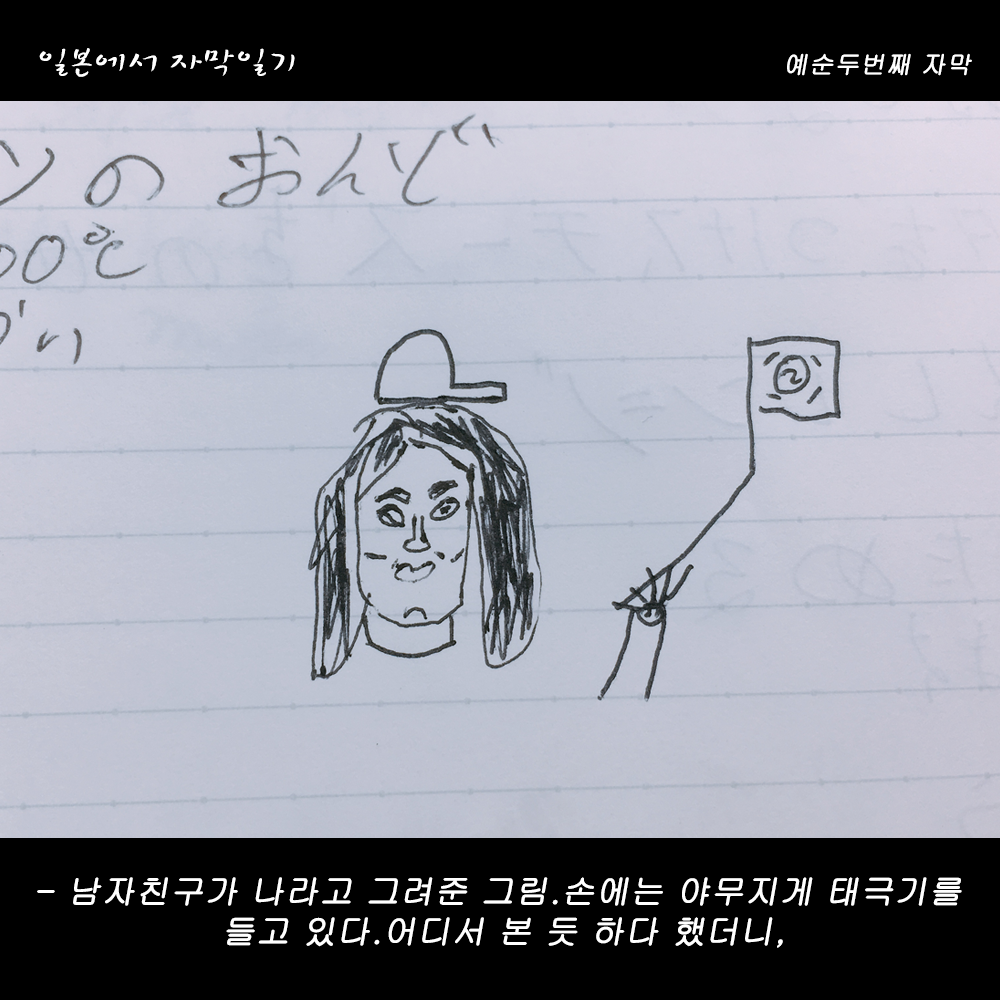 일본에서 자막일기
예순두번째 자막
ンの おんど
00℃
がい
- 남자친구가 나라고 그려준 그림.손에는 야무지게 태극기를
들고 있다.어디서 본 듯 하다 했더니,